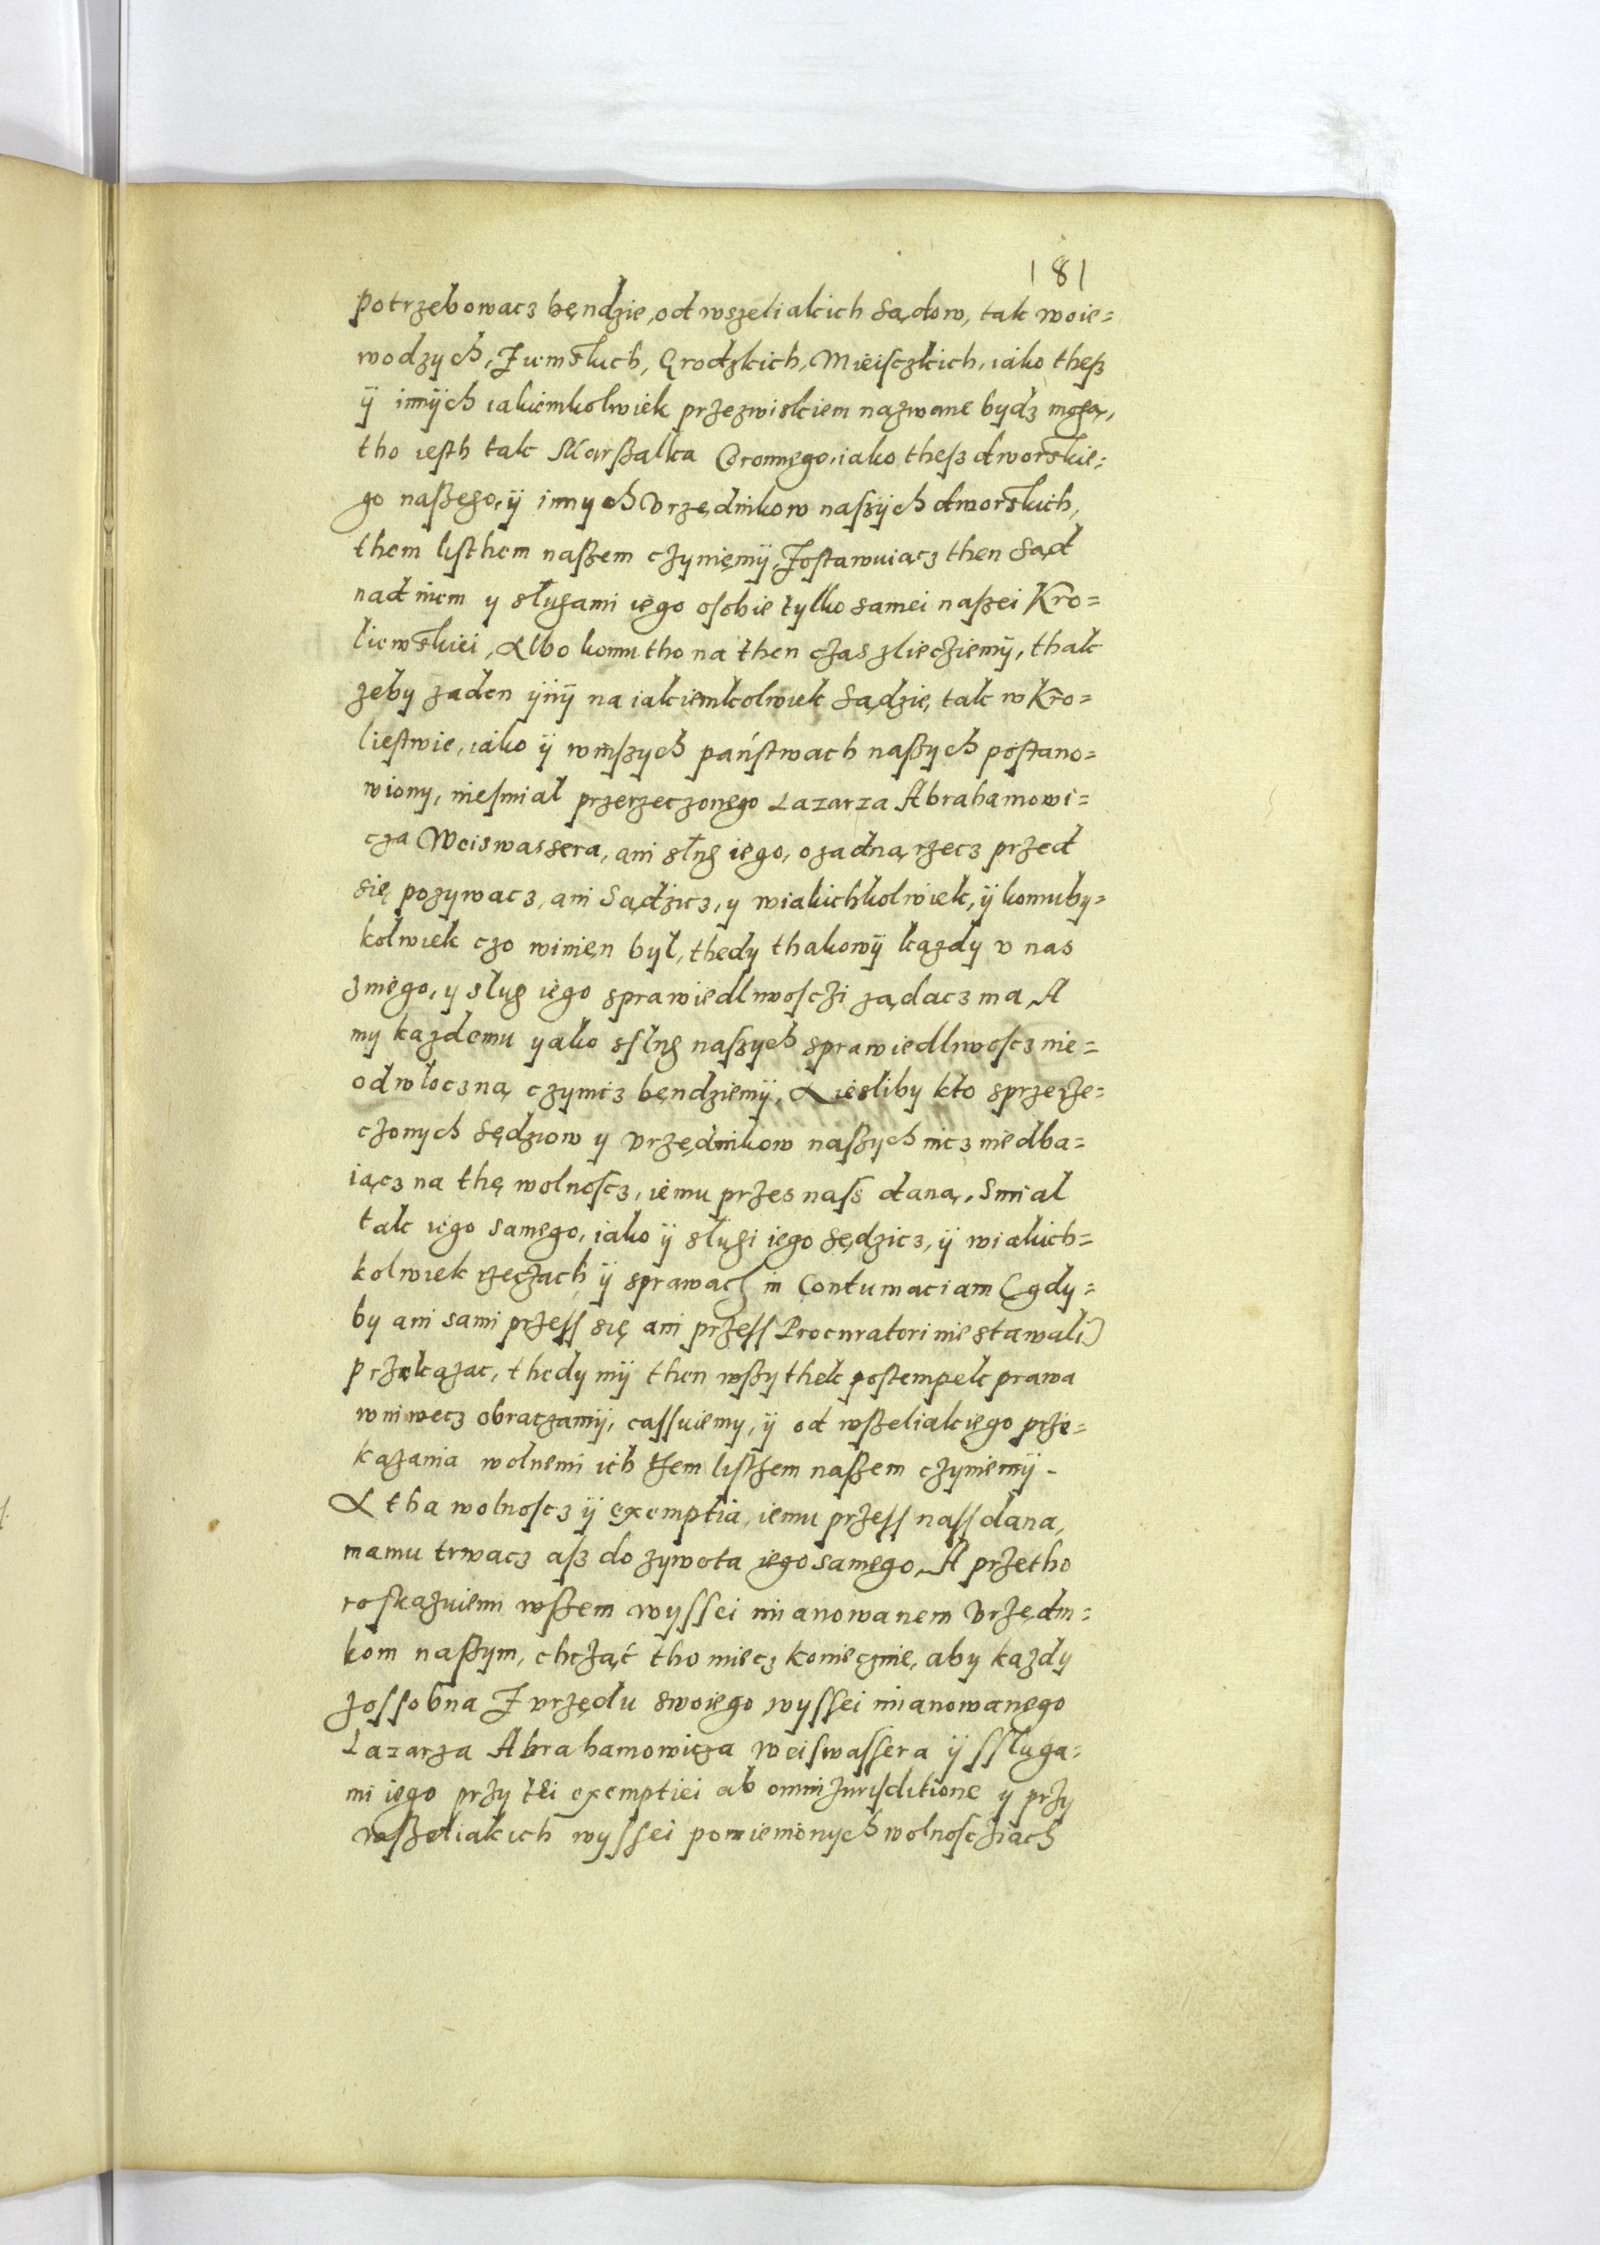 181
potrzebowacz bęndzie, od wszeliakich Sądow, tak woie=
wodzych, Ziemskich, Grodzkich, Mieisczkich, iako thesz
ÿ innÿch iakiemkolwiek przezwiskiem nazwane bydz mogą,
tho iesth tak Marszalka Coronnego, iako thesz dworskie=
go naszego, ÿ innych Vrzędnikow naszÿch dworskich,
them listhem naszem czyniemÿ, Zostawuiącz then Sąd
nad niem y sługami iego osobie tylko samei naszei Kro=
liewskiei, Albo komu tho na then czas zlieciemÿ, thak
zeby zaden ÿnÿ na iakiemkolwiek Sądzie, tak w Kro=
liestwie, iako ÿ w inszych państwach naszych postano=
wiony, niesmial przerzeczonego Lazarza Abrahamowi=
cza Weiswassera, ani sług iego, o zadną rzecz przed
się pozywacz, ani Sądzicz, y wiakichkolwiek, ÿ komuby=
kolwiek czo winien byl, thedy thakowÿ kazdy v nas
zniego, y sług iego sprawiedliwosczi ządacz ma, A
my kazdemu yako ssług naszych sprawiedliwoscz nie=
odwłoczną czynicz bęndziemÿ, A iesliby kto sprzerze=
czonych Sędziow y Vrzędnikow naszych nicz niedba=
iącz na thę wolnoscz, iemu przes nass daną, Smial
tak iego samego, iako ÿ sługi iego Sędzicz, ÿ wiakich=
kolwiek rzeczach ÿ sprawach in Contumaciam (gdy=
by ani sami przess się ani przess Procuratori nie stawali)
przekazac, thedy mÿ then wszythek postempek prawa
wniwecz obraczamÿ, cassuiemy, ÿ od wszeliakiego prze=
kazania wolnemi ich them listhem naszem czyniemÿ.
A tha wolnoscz ÿ exemptia, iemu przess nass dana,
mamu trwacz asz do zywota iego samego, A przetho
roskazuiemi wszem wyssei mianowanem Vrzędni=
kom naszym, chcząć tho miecz koniecznie, aby kazdy
zossobna Z vrzędu swoiego wyssei mianowanego
Lazarza Abrahamowicza Weiswassera ÿ ssługa=
mi iego przy tei exemptiei ab omni Jurisditione y przy
wszeliakich wyssei pomienionych wolnoscziach